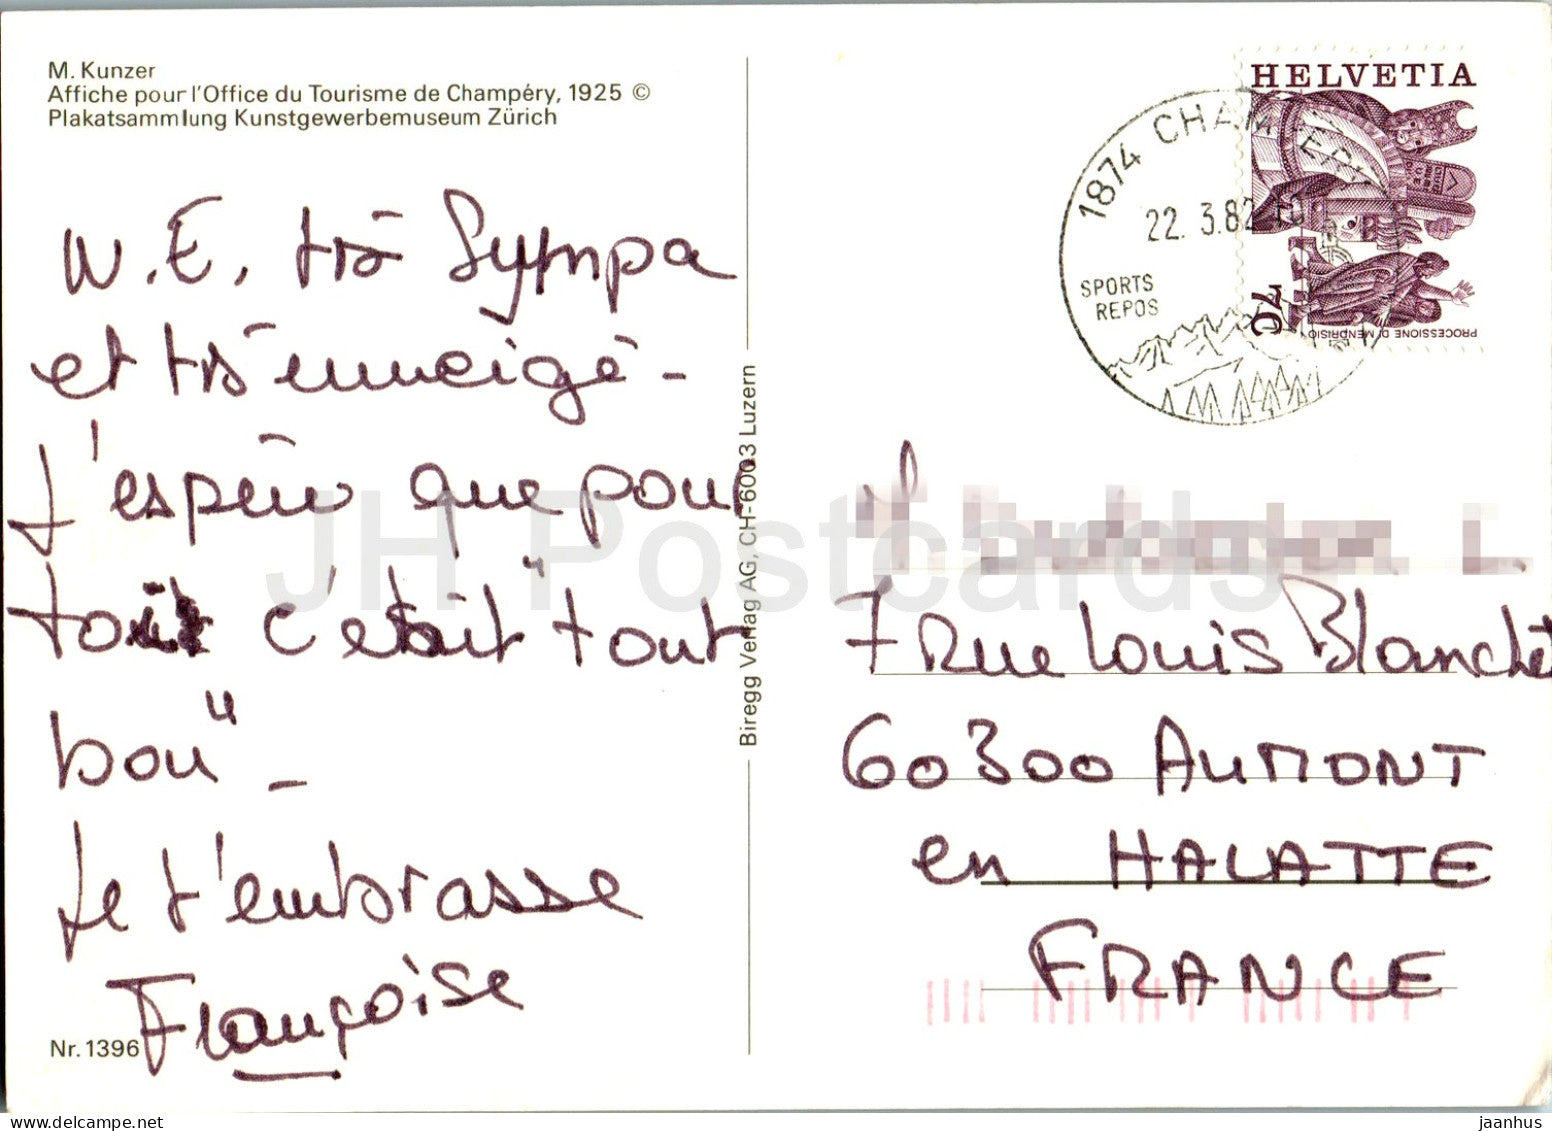 M. Kunzer
Affiche pour l'Office du Tourisme de Champéry, 1925 ©
Plakatsammlung Kunstgewerbemuseum Zürich
W.E. très Sympa
et très enneigé -
J'espère que pour
toi c'était "tout
bon" -
Je t'embrasse
Françoise
Nr. 1396
Biregg Verlag AG, CH-6003 Luzern
HELVETIA
70
PROCESSIONE DI MENDRISIO
1874 CHAMPÉRY
22. 3.82
SPORTS
REPOS
7 Rue Louis Blanchet
60300 AUMONT
en HALATTE
FRANCE
JH Postcards
jaanhus
delcampe.net